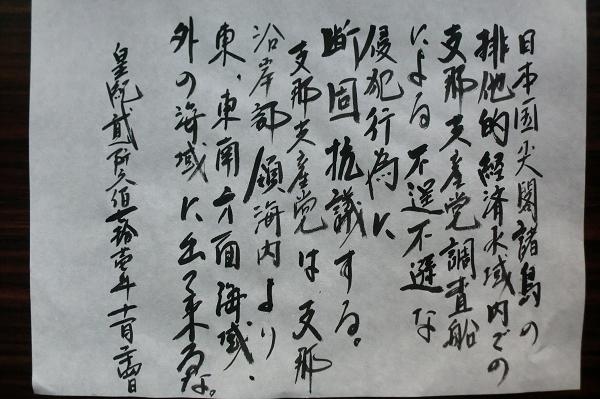 日本国尖閣諸島の
排他的経済水域内での
支那共産党調査船
による不逞不遜な
侵犯行為に
断固抗議する。
支那共産党は、支那
沿岸部領海内より
東、東南方面海域、
外の海域に出て来るな。
皇紀貳阡六佰七拾壱年十一月二十四日